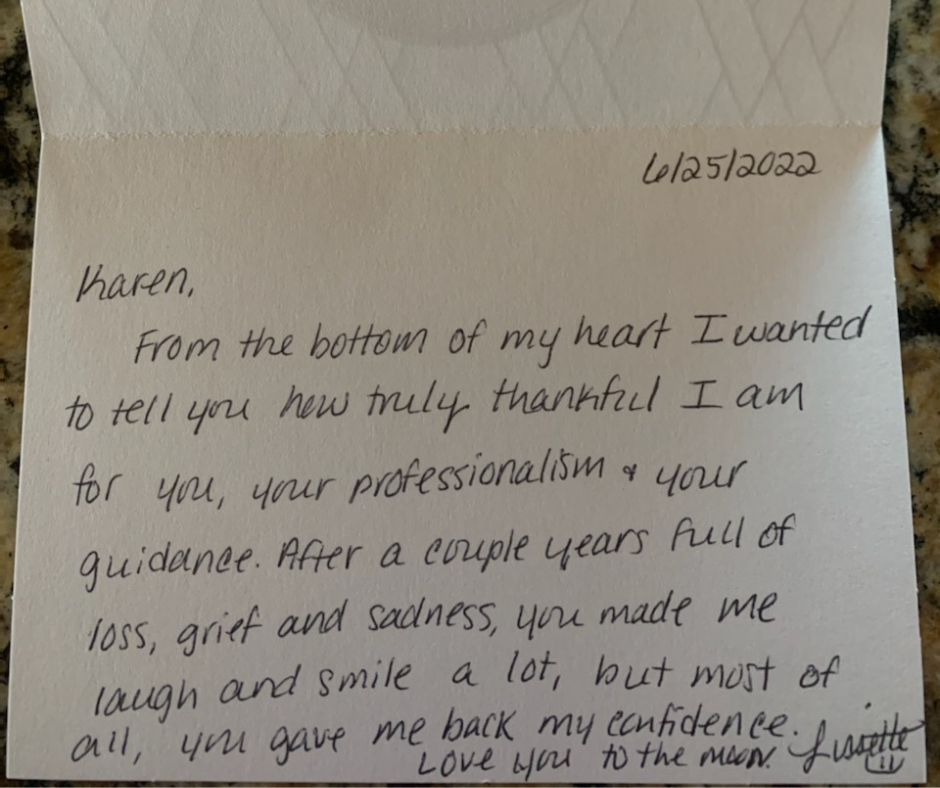 6/25/2022
Karen,
From the bottom of my heart I wanted
to tell you how truly thankful I am
for you, your professionalism & your
guidance. After a couple years full of
loss, grief and sadness, you made me
laugh and smile a lot, but most of
all, you gave me back my confidence.
Love you to the moon. Lissette